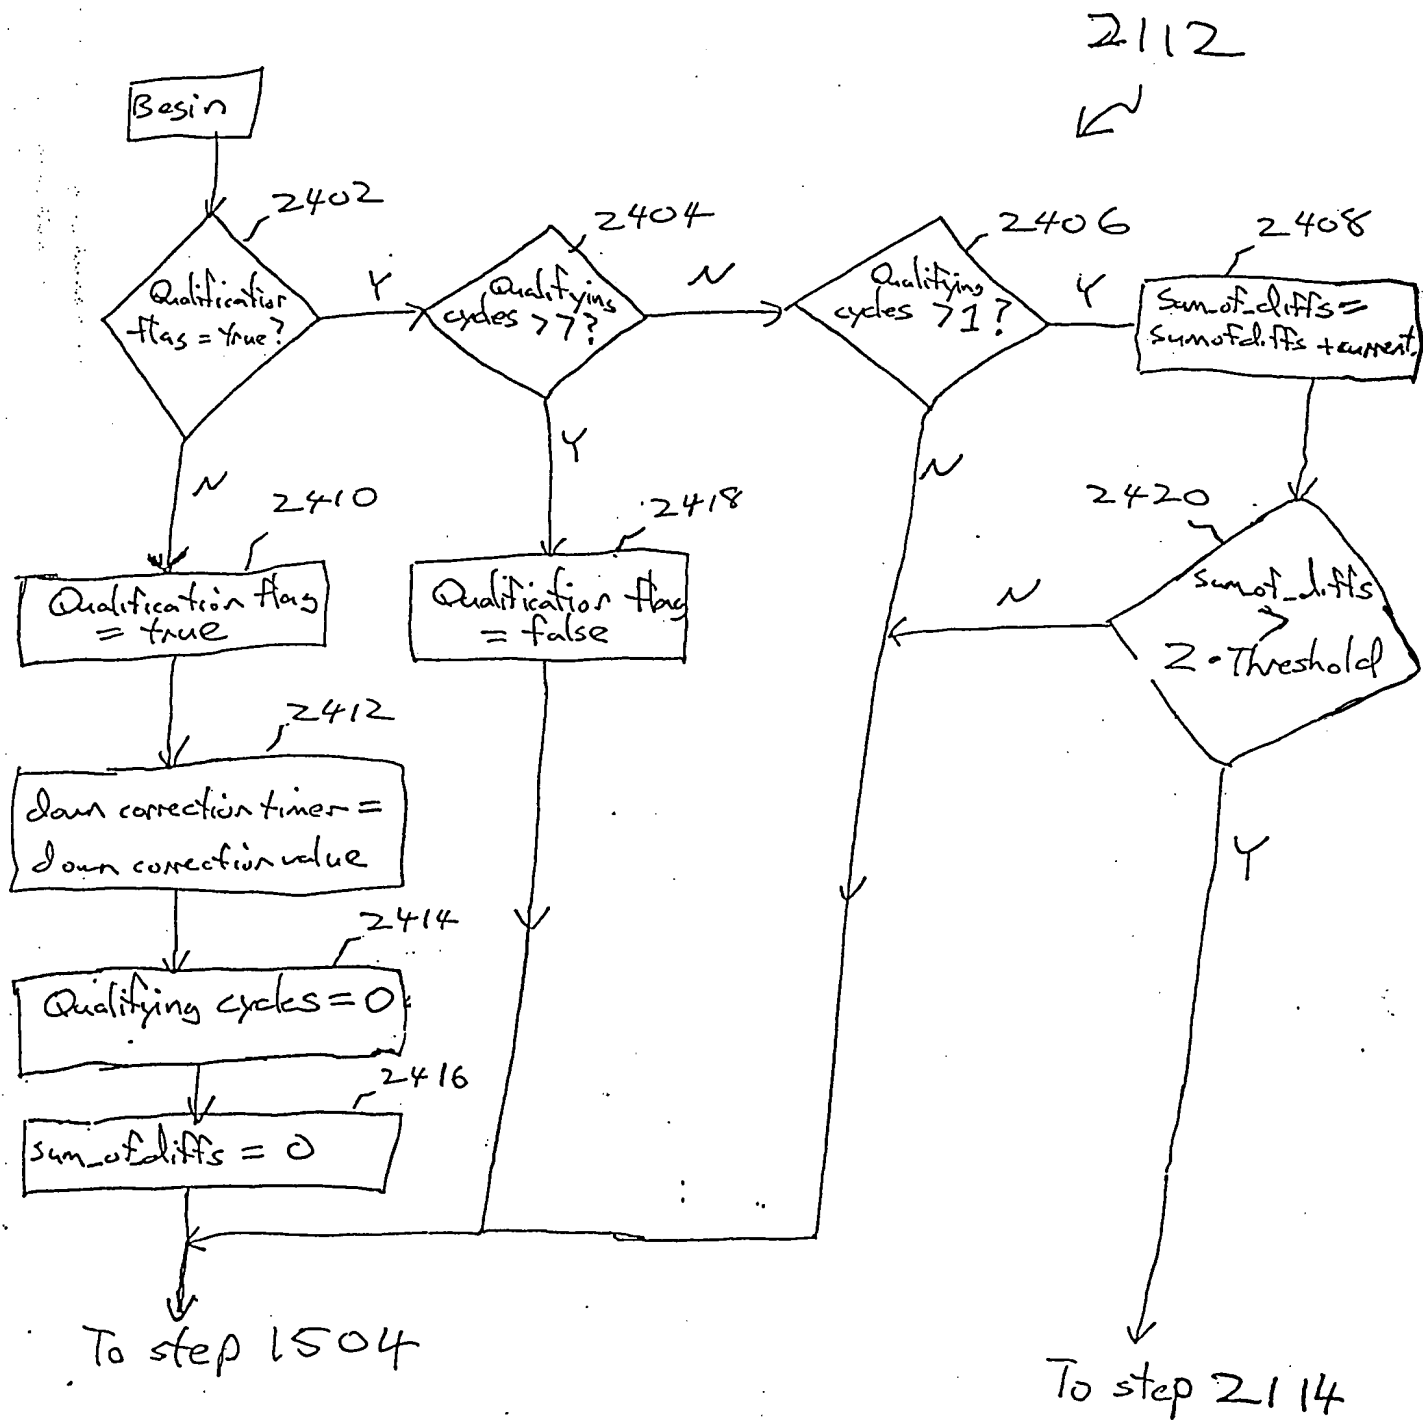 2112
Begin
2402
Qualification
flag = true?
Y
2404
Qualifying
cycles > 7?
N
2406
Qualifying
cycles > 1?
Y
2408
sum_of_diffs =
sumofdiffs + current
N
2410
Qualification flag
= true
Y
2418
Qualification flag
= false
N
2420
sumof_diffs
>
2 • Threshold
N
Y
2412
down correction timer =
down correction value
2414
Qualifying cycles = 0
2416
sum_of_diffs = 0
To step 1504
To step 2114